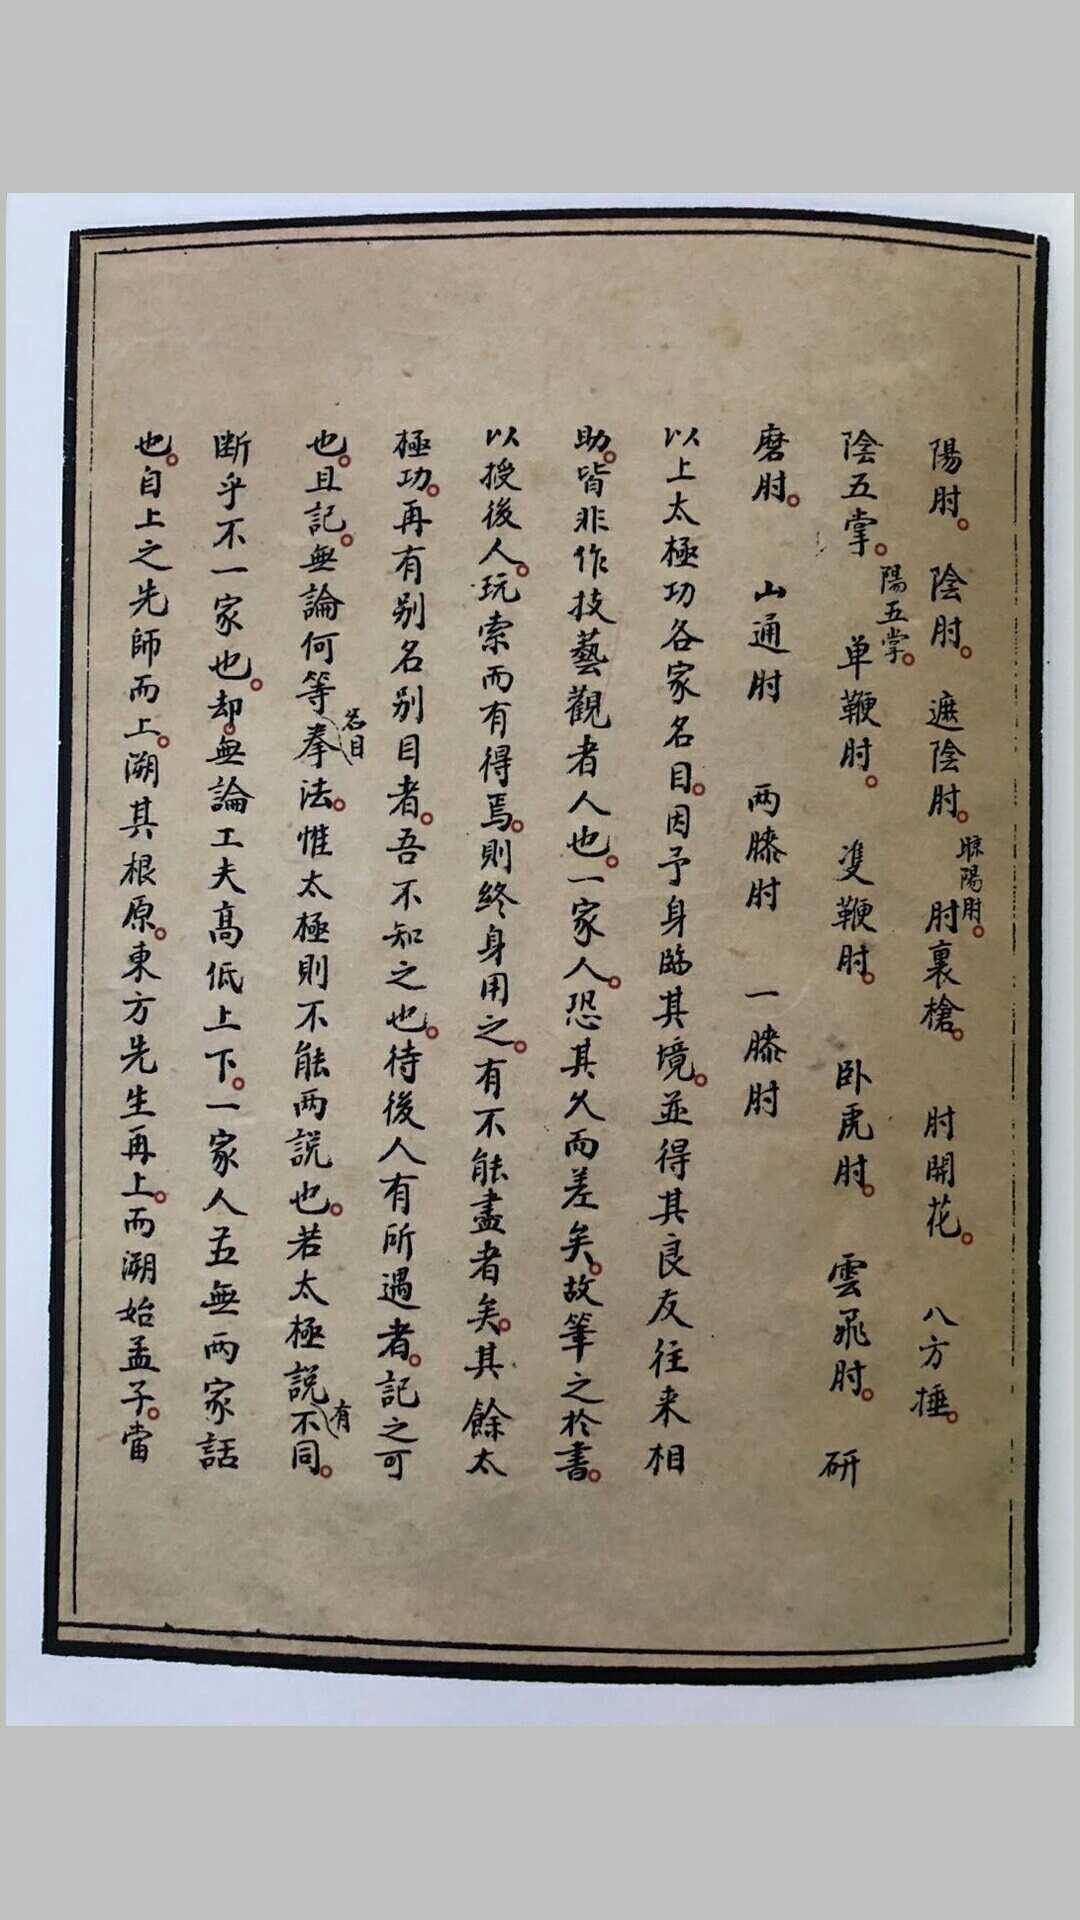 陽肘。陰肘。遮陰肘。晾陽肘。肘裏槍。肘開花。八方捶。
陰五掌。陽五掌。单鞭肘。雙鞭肘。卧虎肘。雲飛肘。研
磨肘。山通肘 两膝肘 一膝肘
以上太極功各家名目。因予身臨其境。並得其良友往来相
助。皆非作技藝觀者人也。一家人。恐其久而差矣。故筆之於書。
以授後人。玩索而有得焉。則終身用之。有不能盡者矣。其餘太
極功。再有别名别目者。吾不知之也。待後人有所遇者。記之可
也。且記。無論何等拳名目法。惟太極則不能两説也。若太極説有不同。
断乎不一家也。却。無論工夫高低上下。一家人並無两家話
也。自上之先師而上。溯其根原。東方先生再上。而溯始孟子。當